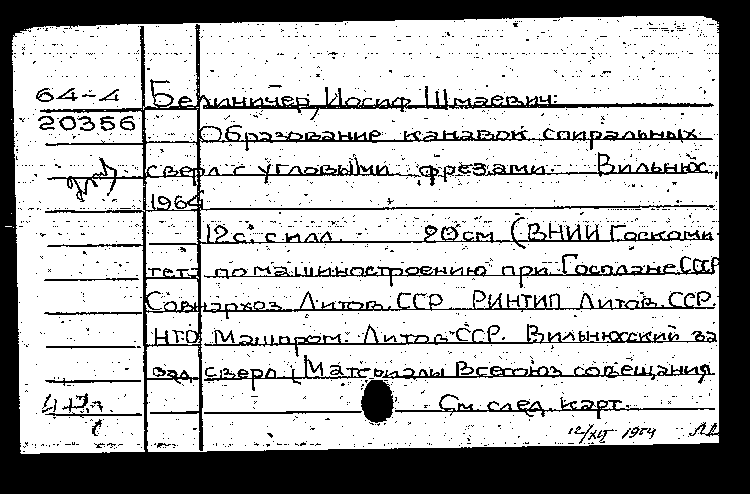 64-4 Белиничер, Иосиф Шмаевич.
20356 Образование канавок спиральных
сверл с угловыми фрезами. Вильнюс,
1964
12 с. с илл. 20 см (ВНИИ Госкоми-
тета по машиностроению при Госплане СССР
Совнархоз Литов. ССР РИНТИП Литов. ССР.
НТО Машпром. Литов ССР. Вильнюсский за
вод сверл (Материалы Всесоюз совещания
См. след. карт.
12/XII 1964